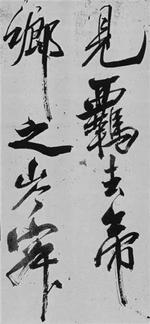 見羈去帝
鄉之岑寂